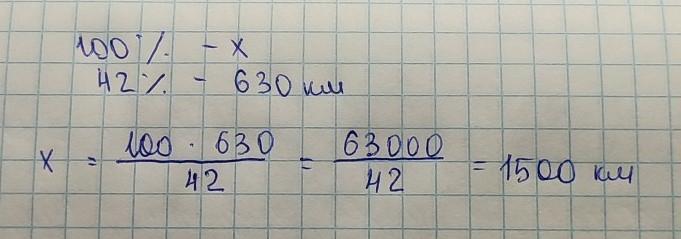 100% - x
42% - 630 км
x = 100 · 630 / 42 = 63000 / 42 = 1500 км